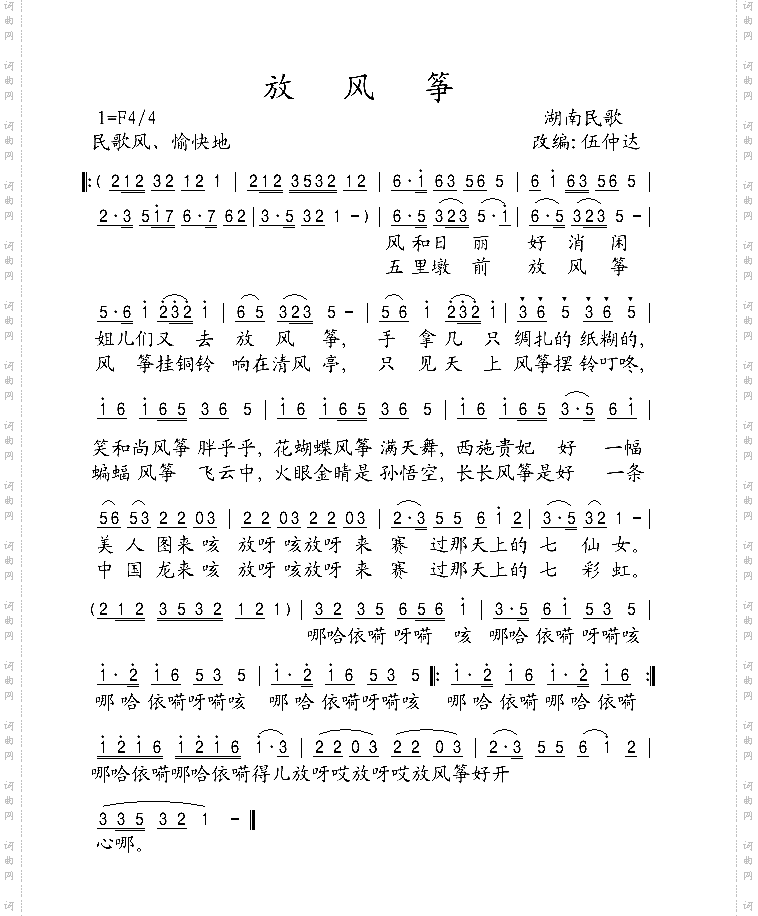 放 风 筝
1=F4/4
湖南民歌
民歌风、愉快地
改编:伍仲达
𝄆( 212 32 12 1 | 212 3532 12 | 6·1 63 56 5 | 6 1 63 56 5 |
2·3 517 6·7 62 | 3·5 32 1 -) | 6·5 323 5·1 | 6·5 323 5 - |
风 和日 丽 好 消 闲
五 里墩 前 放 风 筝
5·6 1 232 1 | 6 5 323 5 - | 56 1 232 1 | 3 6 5 3 6 5 |
姐儿们又 去 放 风 筝, 手 拿几 只 绸扎的 纸糊的,
风 筝挂铜铃 响在清风 亭, 只 见天 上 风筝摆 铃叮咚,
1 6 1 6 5 3 6 5 | 1 6 1 6 5 3 6 5 | 1 6 1 6 5 3·5 6 1 |
笑和尚风筝 胖乎乎, 花蝴蝶风筝 满天舞, 西施贵妃 好 一幅
蝙蝠风筝 飞云中, 火眼金睛是 孙悟空, 长长风筝是好 一条
56 53 2 2 03 | 2 2 03 2 2 03 | 2·3 55 6 1 2 | 3·5 32 1 - |
美 人 图来咳 放呀咳放呀来 赛 过那天上的 七 仙 女。
中 国 龙来咳 放呀咳放呀来 赛 过那天上的 七 彩 虹。
(2 1 2 3 5 3 2 1 2 1) | 32 35 656 1 | 3·5 6 1 53 5 |
哪哈依嗬 呀嗬 咳 哪哈 依嗬呀嗬咳
1·2 1 6 53 5 | 1·2 1 6 53 5 𝄆 1·2 1 6 1·2 1 6 𝄇
哪 哈 依嗬呀嗬咳 哪 哈 依嗬呀嗬咳 哪 哈 依嗬哪 哈 依嗬
1 2 1 6 1 2 1 6 1·3 | 2 2 0 3 2 2 0 3 | 2·3 5 5 6 1 2 |
哪哈依嗬哪哈依嗬得儿放呀哎放呀哎放风筝好开
3 3 5 3 2 1 - ‖
心哪。